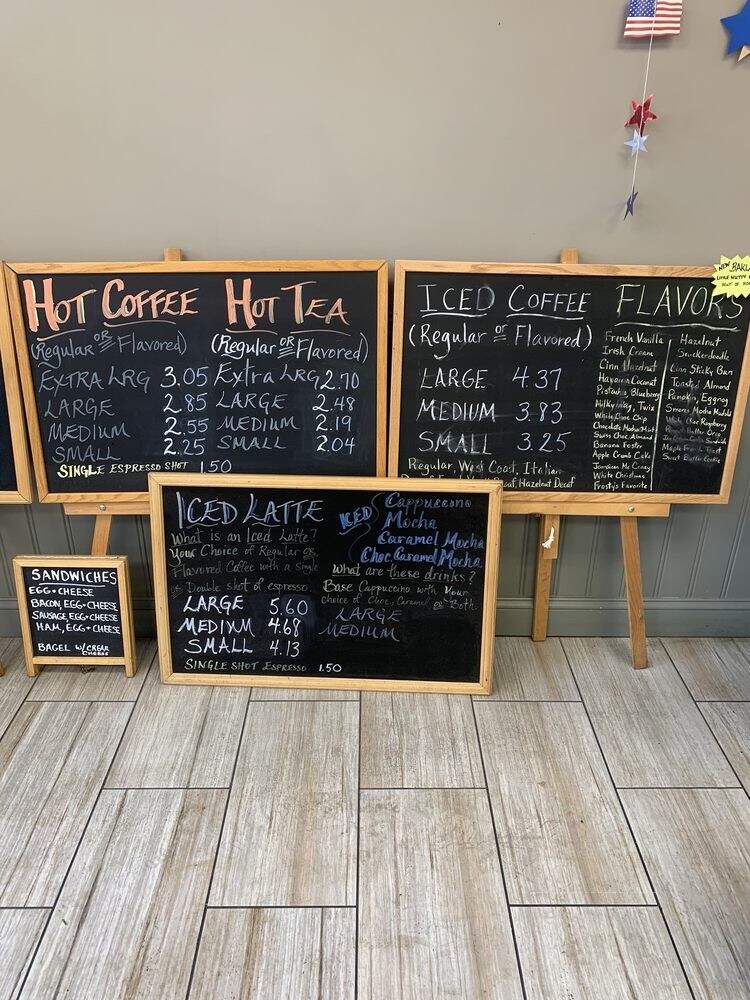 HOT COFFEE
(Regular OR Flavored)
EXTRA LRG 3.05
LARGE 2.85
MEDIUM 2.55
SMALL 2.25
SINGLE ESPRESSO SHOT 1.50
HOT TEA
(Regular OR Flavored)
Extra LRG 2.70
LARGE 2.48
MEDIUM 2.19
SMALL 2.04
ICED COFFEE
(Regular OR Flavored)
LARGE 4.37
MEDIUM 3.83
SMALL 3.25
Regular, West Coast, Italian
Decaf, Hazelnut Decaf
FLAVORS
French Vanilla
Irish Cream
Cinn Hazelnut
Hawaiian Coconut
Pistachio, Blueberry
Milkyway, Twix
White Choc Chip
Swiss Choc. Almond
Banana Foster
Apple Crumb Cake
Jamaican Me Crazy
White Christmas
Frosty's Favorite
Hazelnut
Snickerdoodle
Cinn Sticky Bun
Toasted Almond
Pumpkin, Eggnog
Smores
White Choc Raspberry
Maple French Toast
Sweet Butter Cookie
NEW
SANDWICHES
EGG + CHEESE
BACON, EGG + CHEESE
SAUSAGE, EGG + CHEESE
HAM, EGG + CHEESE
BAGEL W/ CREAM
CHEESE
ICED LATTE
What is an Iced Latte?
Your Choice of Regular OR
Flavored Coffee with a Single
OR Double shot of espresso.
LARGE 5.60
MEDIUM 4.68
SMALL 4.13
SINGLE SHOT ESPRESSO 1.50
ICED
Cappuccino
Mocha
Caramel Mocha
Choc. Caramel Mocha
What are these drinks?
Base Cappuccino with Your
choice of Choc, Caramel or Both.
LARGE
MEDIUM